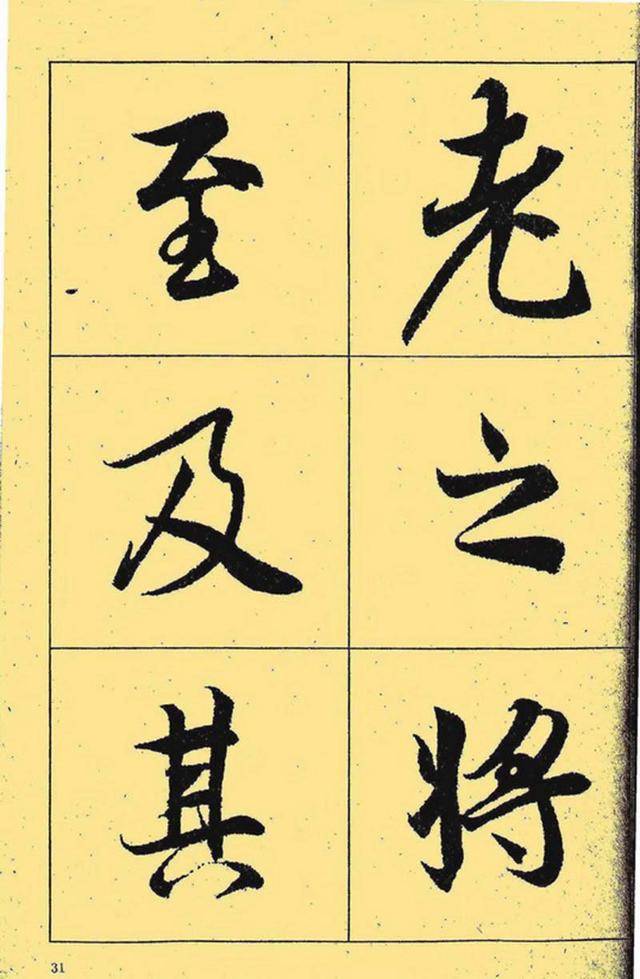 老之将
至及其
31